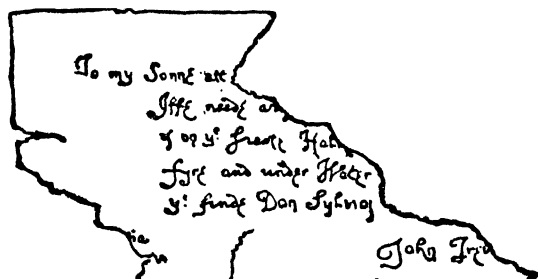 To my Sonne att
Iffe neede an
of on yᵉ Greate
fyre and under Water
yᵉ finde Don Sylvio
John